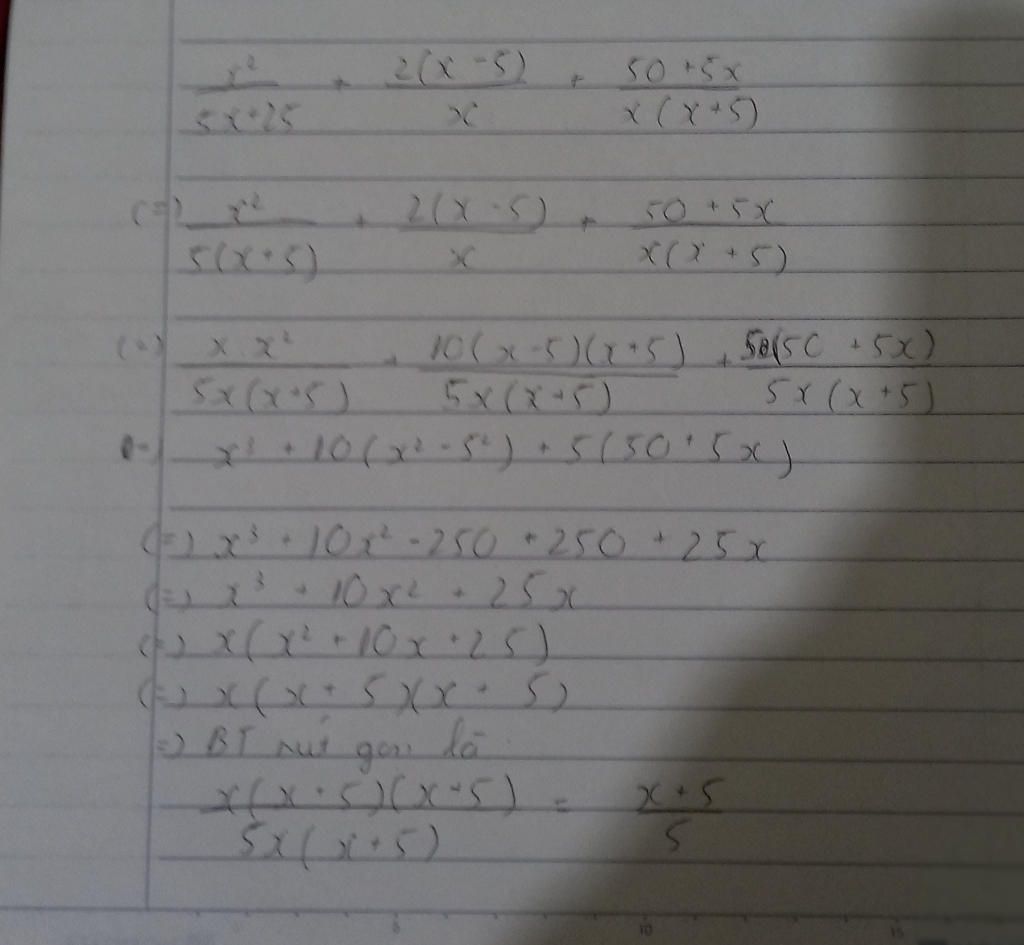 x² / 5x+25 + 2(x-5) / x + 50+5x / x(x+5)
(=) x² / 5(x+5) + 2(x-5) / x + 50+5x / x(x+5)
(=) x.x² / 5x(x+5) + 10(x-5)(x+5) / 5x(x+5) + 5(50+5x) / 5x(x+5)
(=) x³ + 10(x²-5²) + 5(50+5x)
(=) x³ + 10x² - 250 + 250 + 25x
(=) x³ + 10x² + 25x
(=) x(x²+10x+25)
(=) x(x+5)(x+5)
=) BT rút gọn là
x(x+5)(x+5) / 5x(x+5) = x+5 / 5
5 10 15